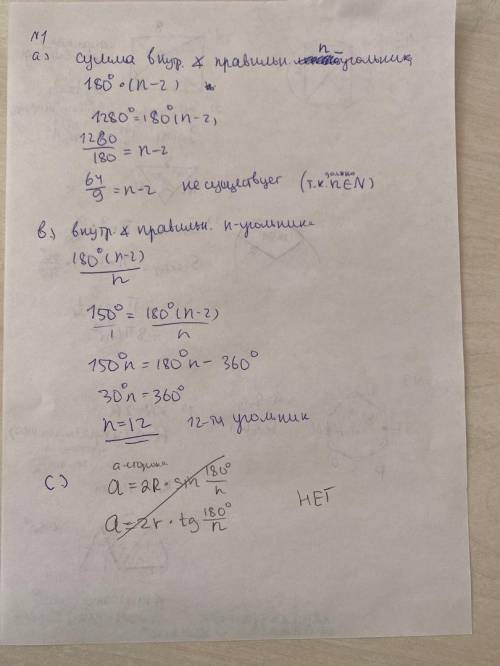 №1
a) сумма внутр. ∡ правильн. n-угольник
180° • (n-2)
1280° = 180°(n-2),
1280/180 = n-2
64/9 = n-2 не существует (т.к. должно n∈N)
b) внутр. ∡ правильн. n-угольника
180°(n-2)/n
150°/1 = 180°(n-2)/n
150°n = 180°n - 360°
30°n = 360°
n=12 12-ти угольник
c) a-сторона
a = 2R • sin 180°/n
a = 2r • tg 180°/n
НЕТ